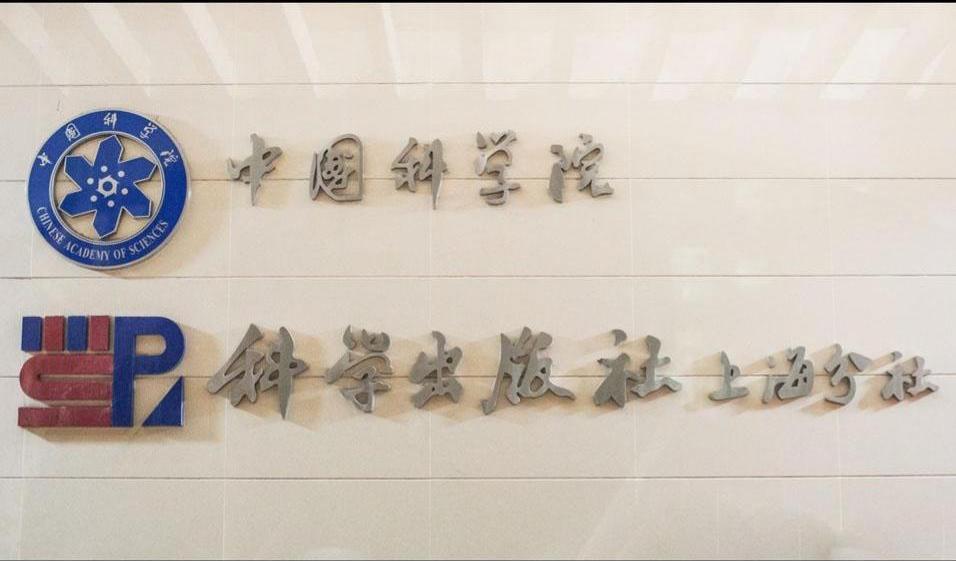 中国科学院
CHINESE ACADEMY OF SCIENCES
中国科学院
SP
科学出版社 上海分社